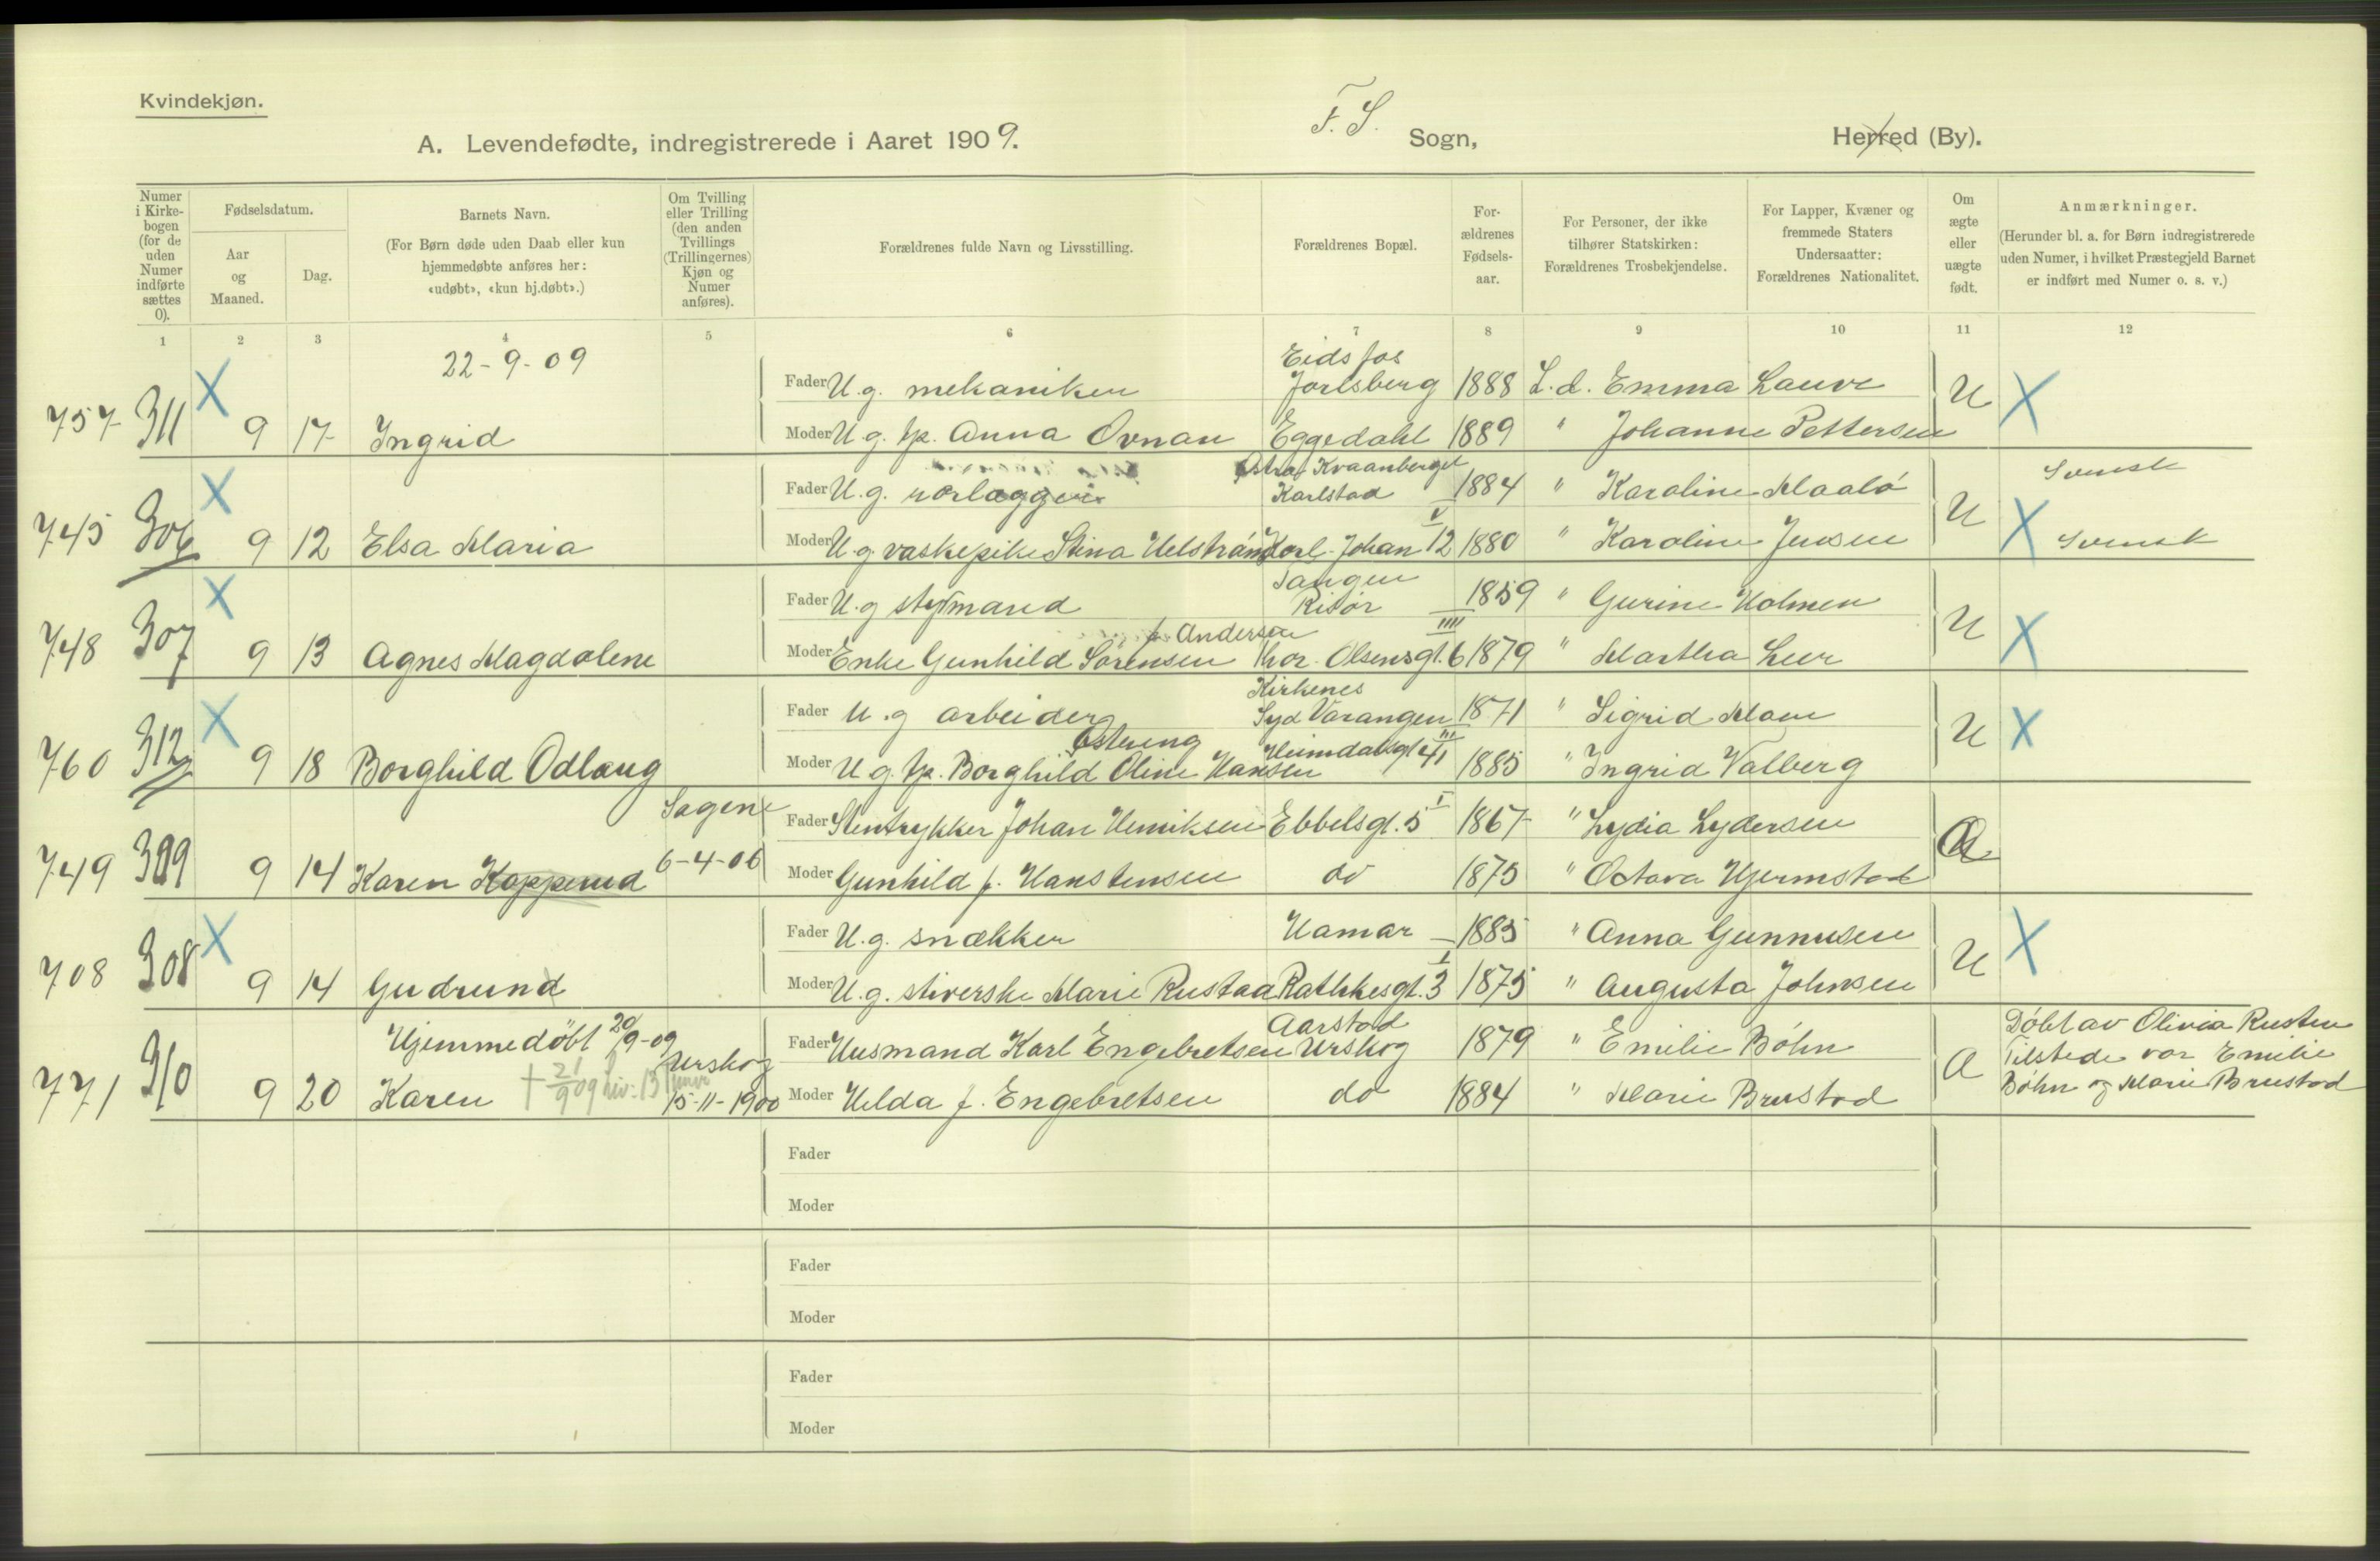 Kvindekjøn.
A. Levendefødte, indregistrerede i Aaret 1909. F. S. Sogn, Herred (By).
Numer i Kirkebogen (for de uden Numer indførte sættes 0).
Fødselsdatum.
Aar og Maaned.
Dag.
Barnets Navn.
(For Børn døde uden Daab eller kun hjemmedøbte anføres her: «udøbt», «kun hj.døbt».)
Om Tvilling eller Trilling (den anden Tvillings (Trillingernes) Kjøn og Numer anføres).
Forældrenes fulde Navn og Livsstilling.
Forældrenes Bopæl.
For-ældrenes Fødsels-aar.
For Personer, der ikke tilhører Statskirken: Forældrenes Trosbekjendelse.
For Lapper, Kvæner og fremmede Staters Undersaatter: Forældrenes Nationalitet.
Om ægte eller uægte født.
Anmærkninger.
(Herunder bl. a. for Børn indregistrerede uden Numer, i hvilket Præstegjeld Barnet er indført med Numer o. s. v.)
1 2 3 4 5 6 7 8 9 10 11 12
22-9-09
Eidsfos
Fader U.g. mekaniker Jarlsberg 1888 L.d. Emma Lauve U X
757 311 X 9 17 Ingrid Moder U.g. tp. Anna Ovnan Eggedahl 1889 " Johanne Pettersen
Østra Kvaanberget
Fader U.g. rørlægger Karlstad 1884 " Karoline Maalø U Svensk
745 306 X 9 12 Elsa Maria Moder U.g. vaskepike Stina Karl Johan 12 V 1880 " Karoline Jensen X Svensk
Tangen
Fader U.g styrmand Risør 1859 " Gurine Holmen U X
f. Andersen
748 307 X 9 13 Agnes Magdalene Moder Enke Gunhild Sørensen Thor Olsensgt. 6 IIII 1879 " Martha Leer
Kirkenes
Fader U.g arbeider Syd Varanger 1871 " Sigrid Moen U X
Østreng
760 312 X 9 18 Borghild Odlaug Moder U.g. tp. Borghild Oline Hansen Heimdalsgt 41 III 1885 " Ingrid Valberg
Sagene
Fader Stentrykker Johan Henriksen Ebbelsgt. 5 I 1867 " Lydia Lydersen Æ
749 309 9 14 Karen Kopperud 6-4-06 Moder Gunhild f. Hanstensen do 1875 " Octava Hjermstad
Fader U.g. snækker Hamar 1885 " Anna Gunnusen U X
708 308 X 9 14 Gudrund Moder U.g. stryerske Marie Rustad Rathkesgt. 3 I 1875 " Augusta Johnsen
Hjemmedøbt 20/9-09 Aarstad Døbt av Olivia Rusten
Urskog Fader Husmand Karl Engebretsen Urskog 1879 " Emilie Bøhn Æ Tilstede var Emilie
771 310 9 20 Karen + 21/9 09 15-11-1900 Moder Helda f. Engebretsen do 1884 " Marie Brustad Bøhn og Marie Brustad
Fader
Moder
Fader
Moder
Fader
Moder